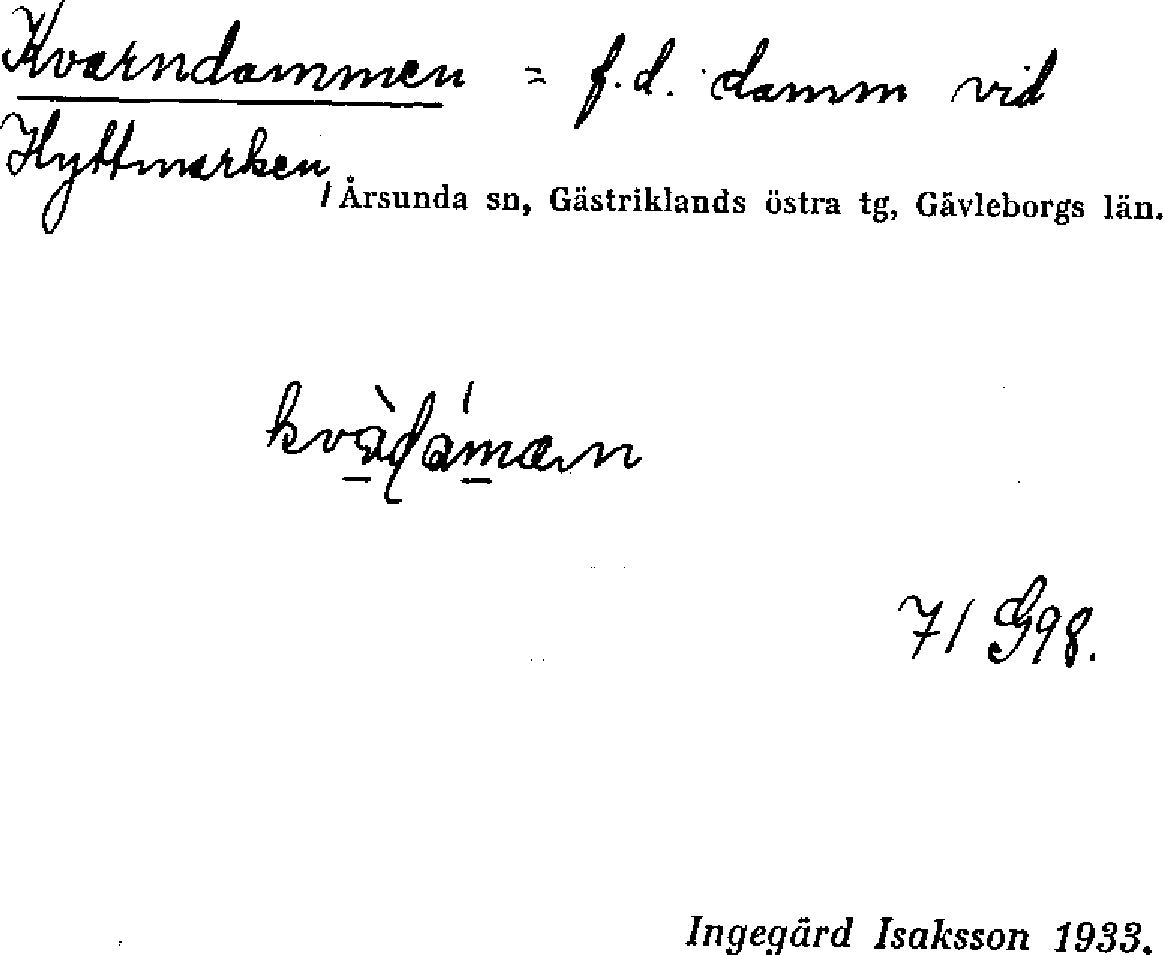 Kvarndammen = f.d. damm vid
Hyttmarken,
Årsunda sn, Gästriklands östra tg, Gävleborgs län.
71 G98.
Ingegärd Isaksson 1933.